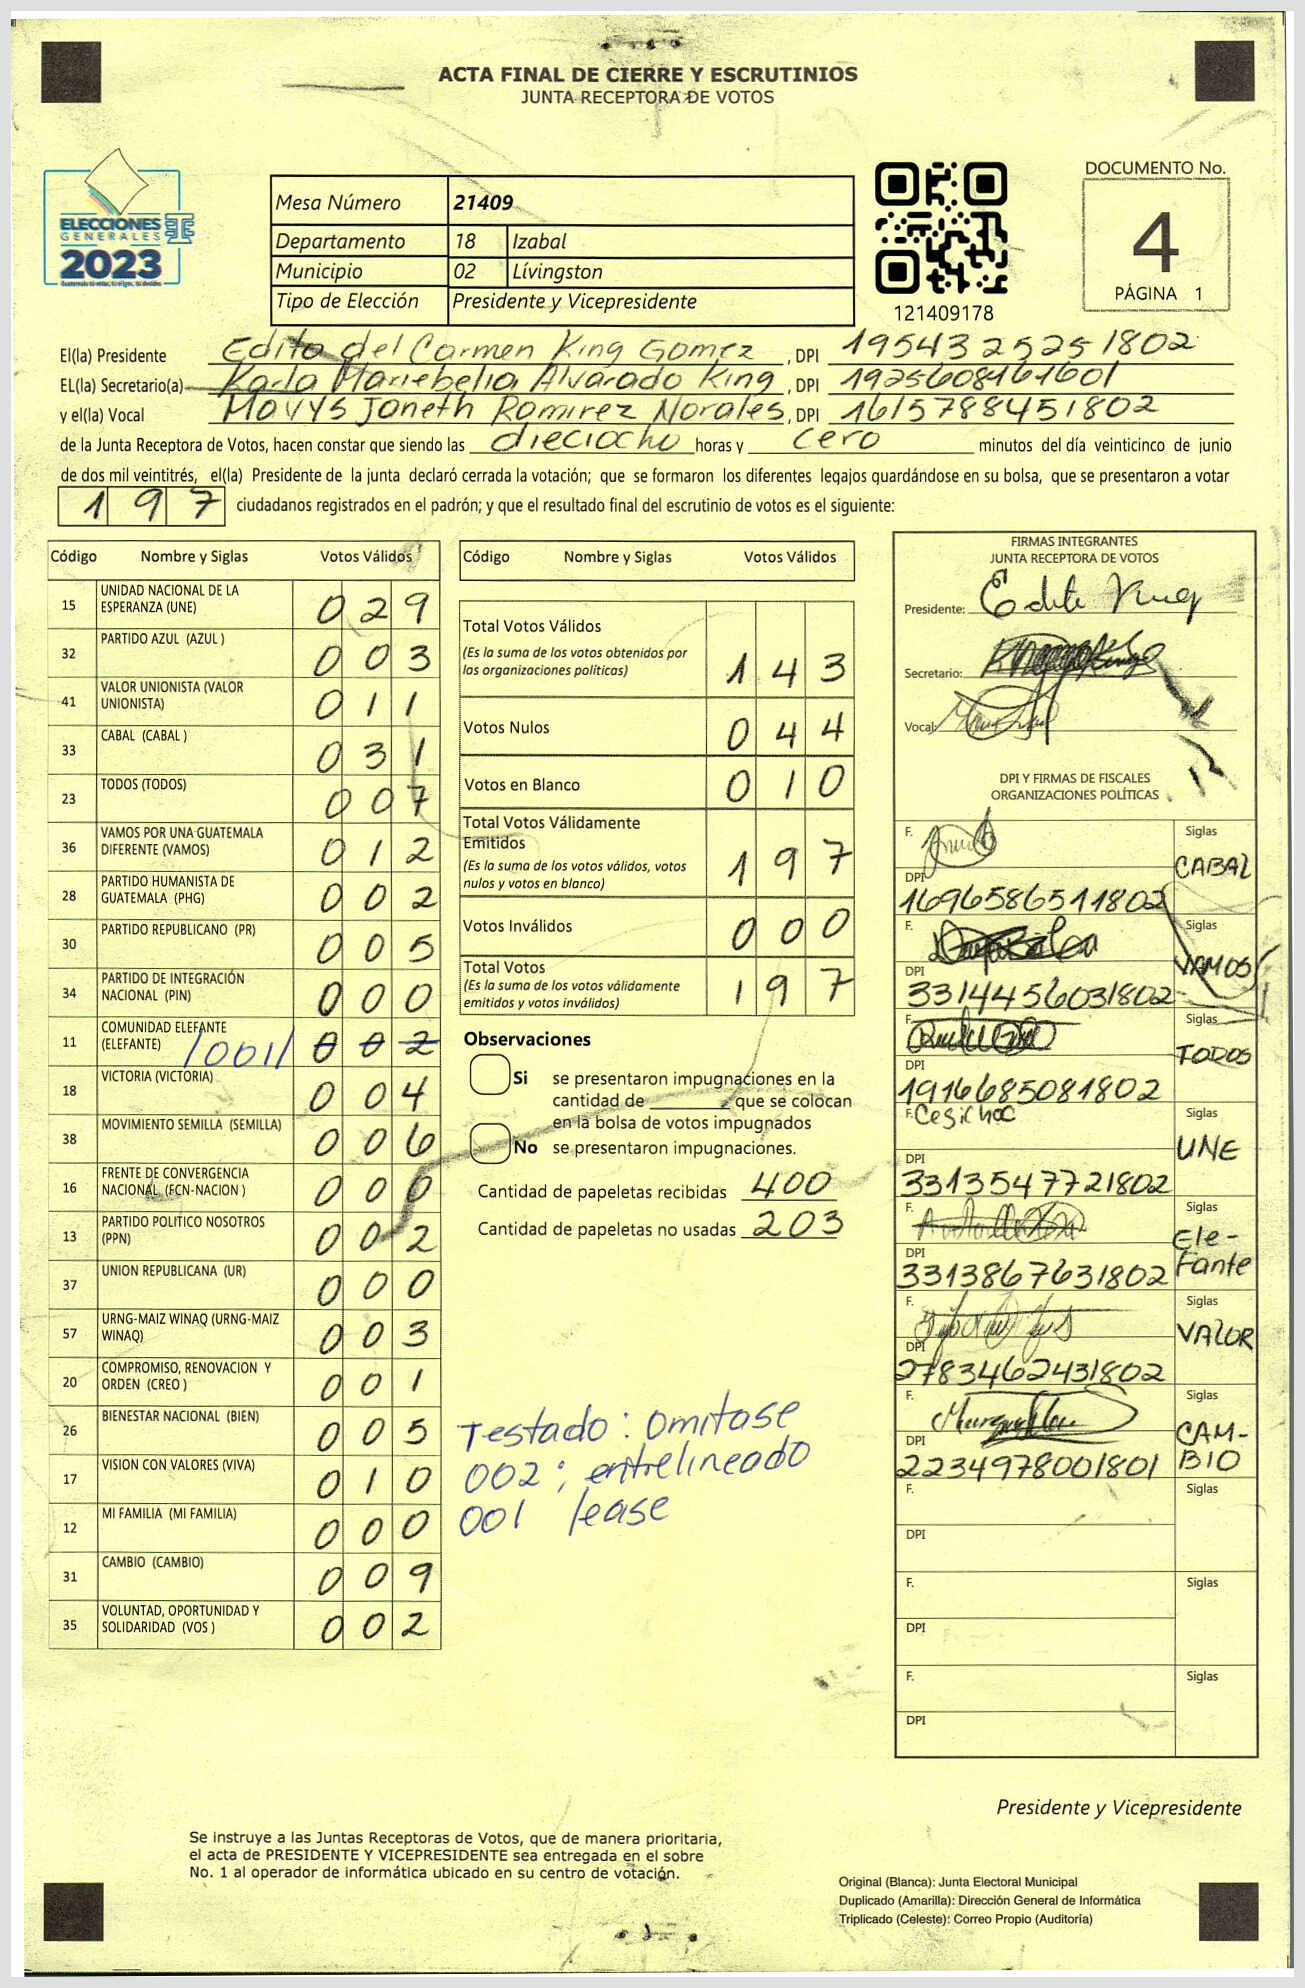 ACTA FINAL DE CIERRE Y ESCRUTINIOS
JUNTA RECEPTORA DE VOTOS
ELECCIONES
GENERALES
2023
Mesa Número 21409
Departamento 18 Izabal
Municipio 02 Lívingston
Tipo de Elección Presidente y Vicepresidente
121409178
DOCUMENTO No.
4
PÁGINA 1
El(la) Presidente Edita del Carmen King Gomez, DPI 1954325251802
EL(la) Secretario(a) Karla Mariebelia Alvarado King, DPI 1925608161601
y el(la) Vocal Mavys Janeth Ramirez Norales, DPI 1615788451802
de la Junta Receptora de Votos, hacen constar que siendo las dieciocho horas y cero minutos del día veinticinco de junio
de dos mil veintitrés, el(la) Presidente de la junta declaró cerrada la votación; que se formaron los diferentes legajos guardándose en su bolsa, que se presentaron a votar
197 ciudadanos registrados en el padrón; y que el resultado final del escrutinio de votos es el siguiente:
Código Nombre y Siglas Votos Válidos
15 UNIDAD NACIONAL DE LA ESPERANZA (UNE) 029
32 PARTIDO AZUL (AZUL ) 003
41 VALOR UNIONISTA (VALOR UNIONISTA) 011
33 CABAL (CABAL ) 031
23 TODOS (TODOS) 007
36 VAMOS POR UNA GUATEMALA DIFERENTE (VAMOS) 012
28 PARTIDO HUMANISTA DE GUATEMALA (PHG) 002
30 PARTIDO REPUBLICANO (PR) 005
34 PARTIDO DE INTEGRACIÓN NACIONAL (PIN) 000
11 COMUNIDAD ELEFANTE (ELEFANTE) /001/ 002
18 VICTORIA (VICTORIA) 004
38 MOVIMIENTO SEMILLA (SEMILLA) 006
16 FRENTE DE CONVERGENCIA NACIONAL (FCN-NACION ) 000
13 PARTIDO POLITICO NOSOTROS (PPN) 002
37 UNION REPUBLICANA (UR) 000
57 URNG-MAIZ WINAQ (URNG-MAIZ WINAQ) 003
20 COMPROMISO, RENOVACION Y ORDEN (CREO ) 001
26 BIENESTAR NACIONAL (BIEN) 005
17 VISION CON VALORES (VIVA) 010
12 MI FAMILIA (MI FAMILIA) 000
31 CAMBIO (CAMBIO) 009
35 VOLUNTAD, OPORTUNIDAD Y SOLIDARIDAD (VOS ) 002
Código Nombre y Siglas Votos Válidos
Total Votos Válidos
(Es la suma de los votos obtenidos por
las organizaciones políticas) 143
Votos Nulos 044
Votos en Blanco 010
Total Votos Válidamente
Emitidos
(Es la suma de los votos válidos, votos
nulos y votos en blanco) 197
Votos Inválidos 000
Total Votos
(Es la suma de los votos válidamente
emitidos y votos inválidos) 197
Observaciones
Si se presentaron impugnaciones en la
cantidad de ________ que se colocan
en la bolsa de votos impugnados
No se presentaron impugnaciones.
Cantidad de papeletas recibidas 400
Cantidad de papeletas no usadas 203
Testado: omitase
002; entrelineado
001 lease
FIRMAS INTEGRANTES
JUNTA RECEPTORA DE VOTOS
Presidente: Edita King
Secretario:
Vocal:
DPI Y FIRMAS DE FISCALES
ORGANIZACIONES POLÍTICAS
F. Siglas CABAL
DPI 1696586511802
F. Siglas VAMOS
DPI 3314456031802
F. Siglas TODOS
DPI 1916685081802
F. Siglas UNE
DPI 3313547721802
F. Siglas Ele-
Fante
DPI 3313867631802
F. Siglas VALOR
DPI 2783462431802
F. Siglas CAM-
BIO
DPI 2234978001801
F. Siglas
DPI
F. Siglas
DPI
F. Siglas
DPI
Presidente y Vicepresidente
Se instruye a las Juntas Receptoras de Votos, que de manera prioritaria,
el acta de PRESIDENTE Y VICEPRESIDENTE sea entregada en el sobre
No. 1 al operador de informática ubicado en su centro de votación.
Original (Blanca): Junta Electoral Municipal
Duplicado (Amarilla): Dirección General de Informática
Triplicado (Celeste): Correo Propio (Auditoría)